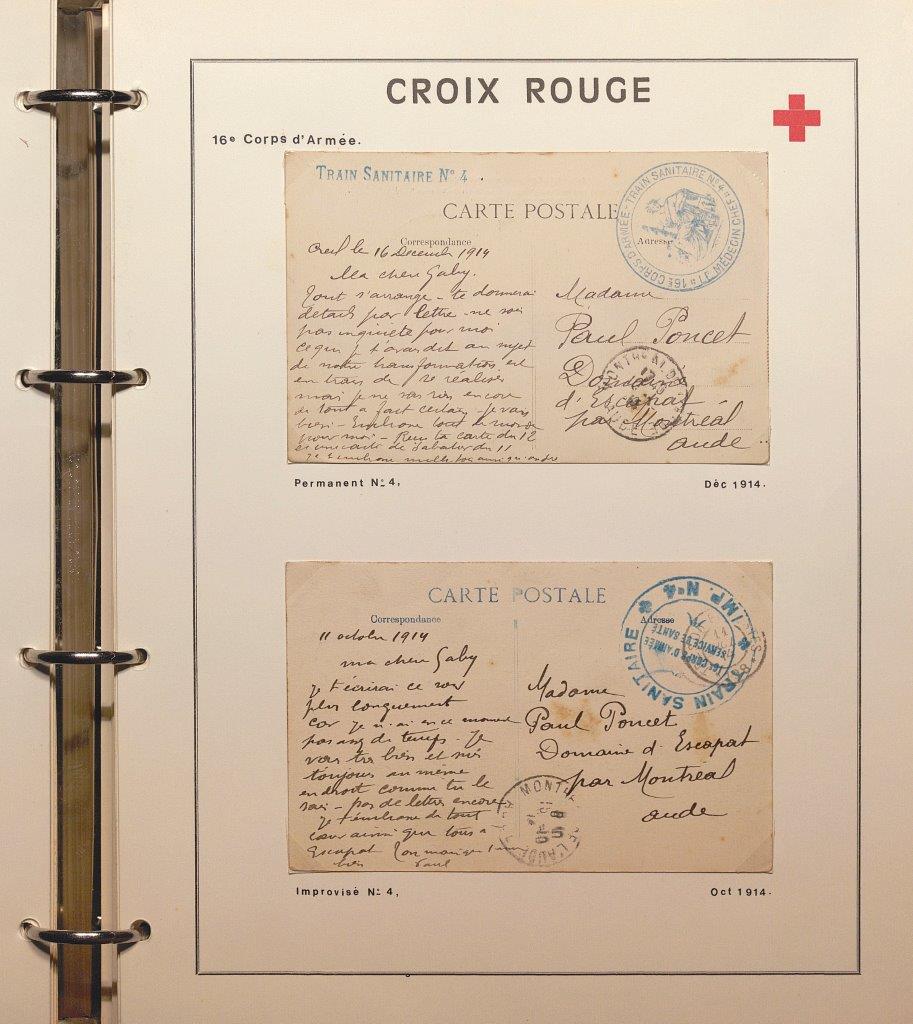 CROIX ROUGE
16e Corps d'Armée.
TRAIN SANITAIRE No 4.
CARTE POSTALE
Correspondance
Adresse
16e CORPS D'ARMÉE - TRAIN SANITAIRE No 4 LE MÉDECIN CHEF
Creil le 16 Decembre 1914
Ma chere Gaby.
Tout s'arrange - te donnerai
details par lettre - ne sois
pas inquiete pour moi
ce que je t'avais dit au sujet
de notre transformation est
en train de se réaliser
mais je ne sais rien encore
de tout a fait certain - je vais
bien - Embrasse tout le monde
pour moi - Reçu ta carte du 12
et une carte de Sabatier du 11
Je t'embrasse mille fois
Madame
Paul Poncet
Domaine
d'Escapat
par Montréal
aude
Permanent No 4,
Dèc 1914.
CARTE POSTALE
Correspondance
Adresse
TRAIN SANITAIRE * IMP. No 4 *
16e CORPS D'ARMÉE
SERVICE DE SANTÉ
11 octobre 1914
ma chere Gaby
Je t'écrirai ce soir
plus longuement
car je n'ai en ce moment
pas assez de temps. Je
vais tres bien et suis
toujours au même
endroit comme tu le
sais - pas de lettre encore
Je t'embrasse de tout
coeur ainsi que tous a
Escapat
bien Paul
Madame
Paul Poncet
Domaine d'Escapat
par Montreal
aude
Improvisé No 4,
Oct 1914.